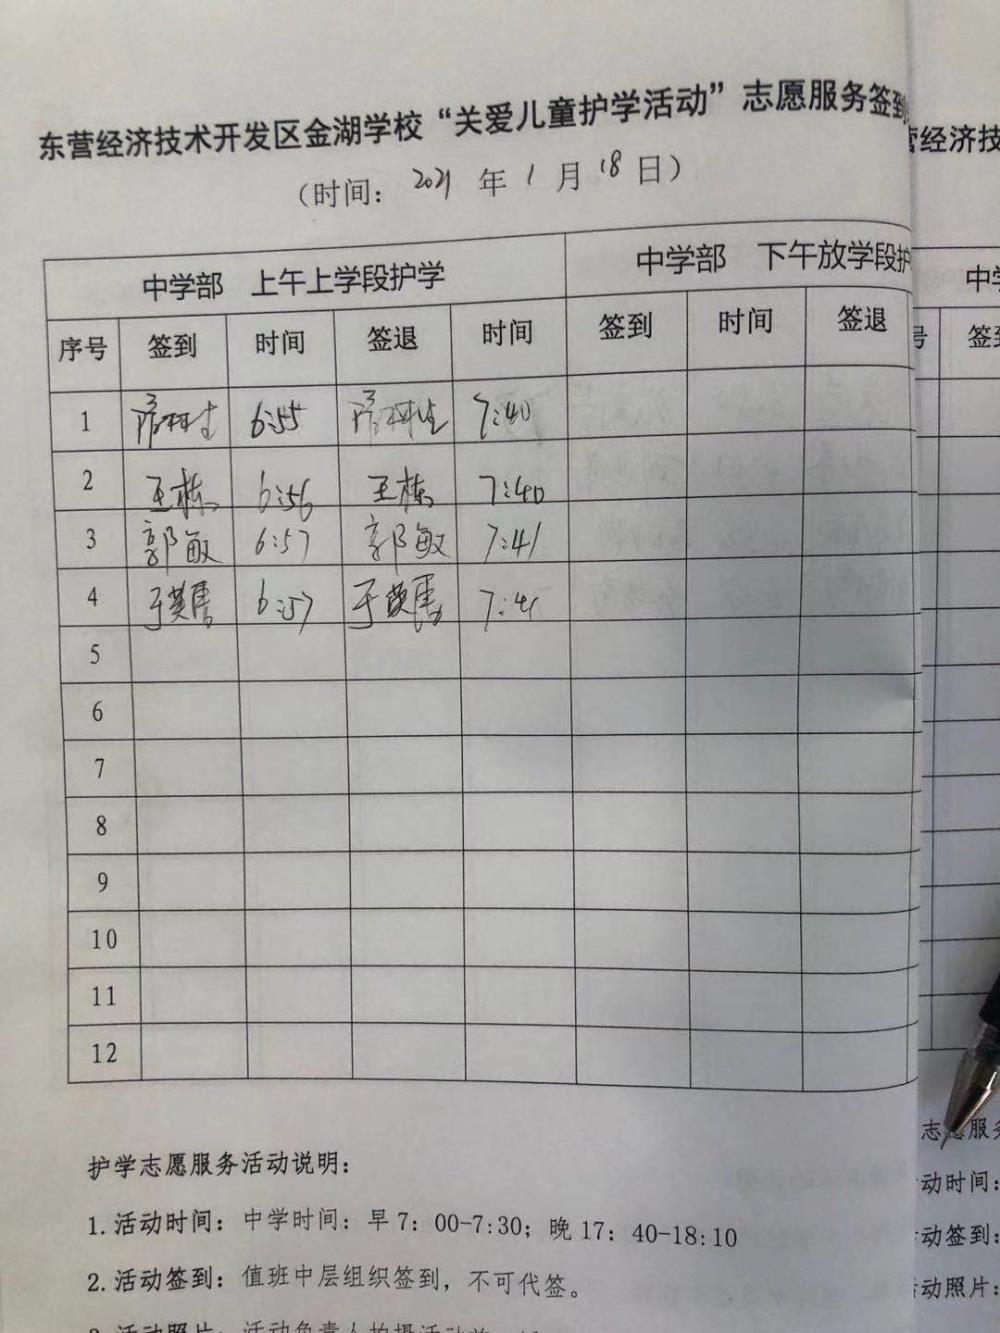 东营经济技术开发区金湖学校“关爱儿童护学活动”志愿服务签到
营经济技
（时间：2021年1月18日）
中学部 上午上学段护学 中学部 下午放学段护
中学
序号 签到 时间 签退 时间 签到 时间 签退
号 签到
1 6:55 7:40
2 王栋 6:56 王栋 7:40
3 郭敏 6:57 郭敏 7:41
4 6:57 7:41
5
6
7
8
9
10
11
12
护学志愿服务活动说明：
志愿服务
1.活动时间：中学时间：早7：00-7:30；晚17：40-18:10
动时间：
2.活动签到：值班中层组织签到，不可代签。
动签到：
活动照片：活动负责人拍摄活动
动照片：